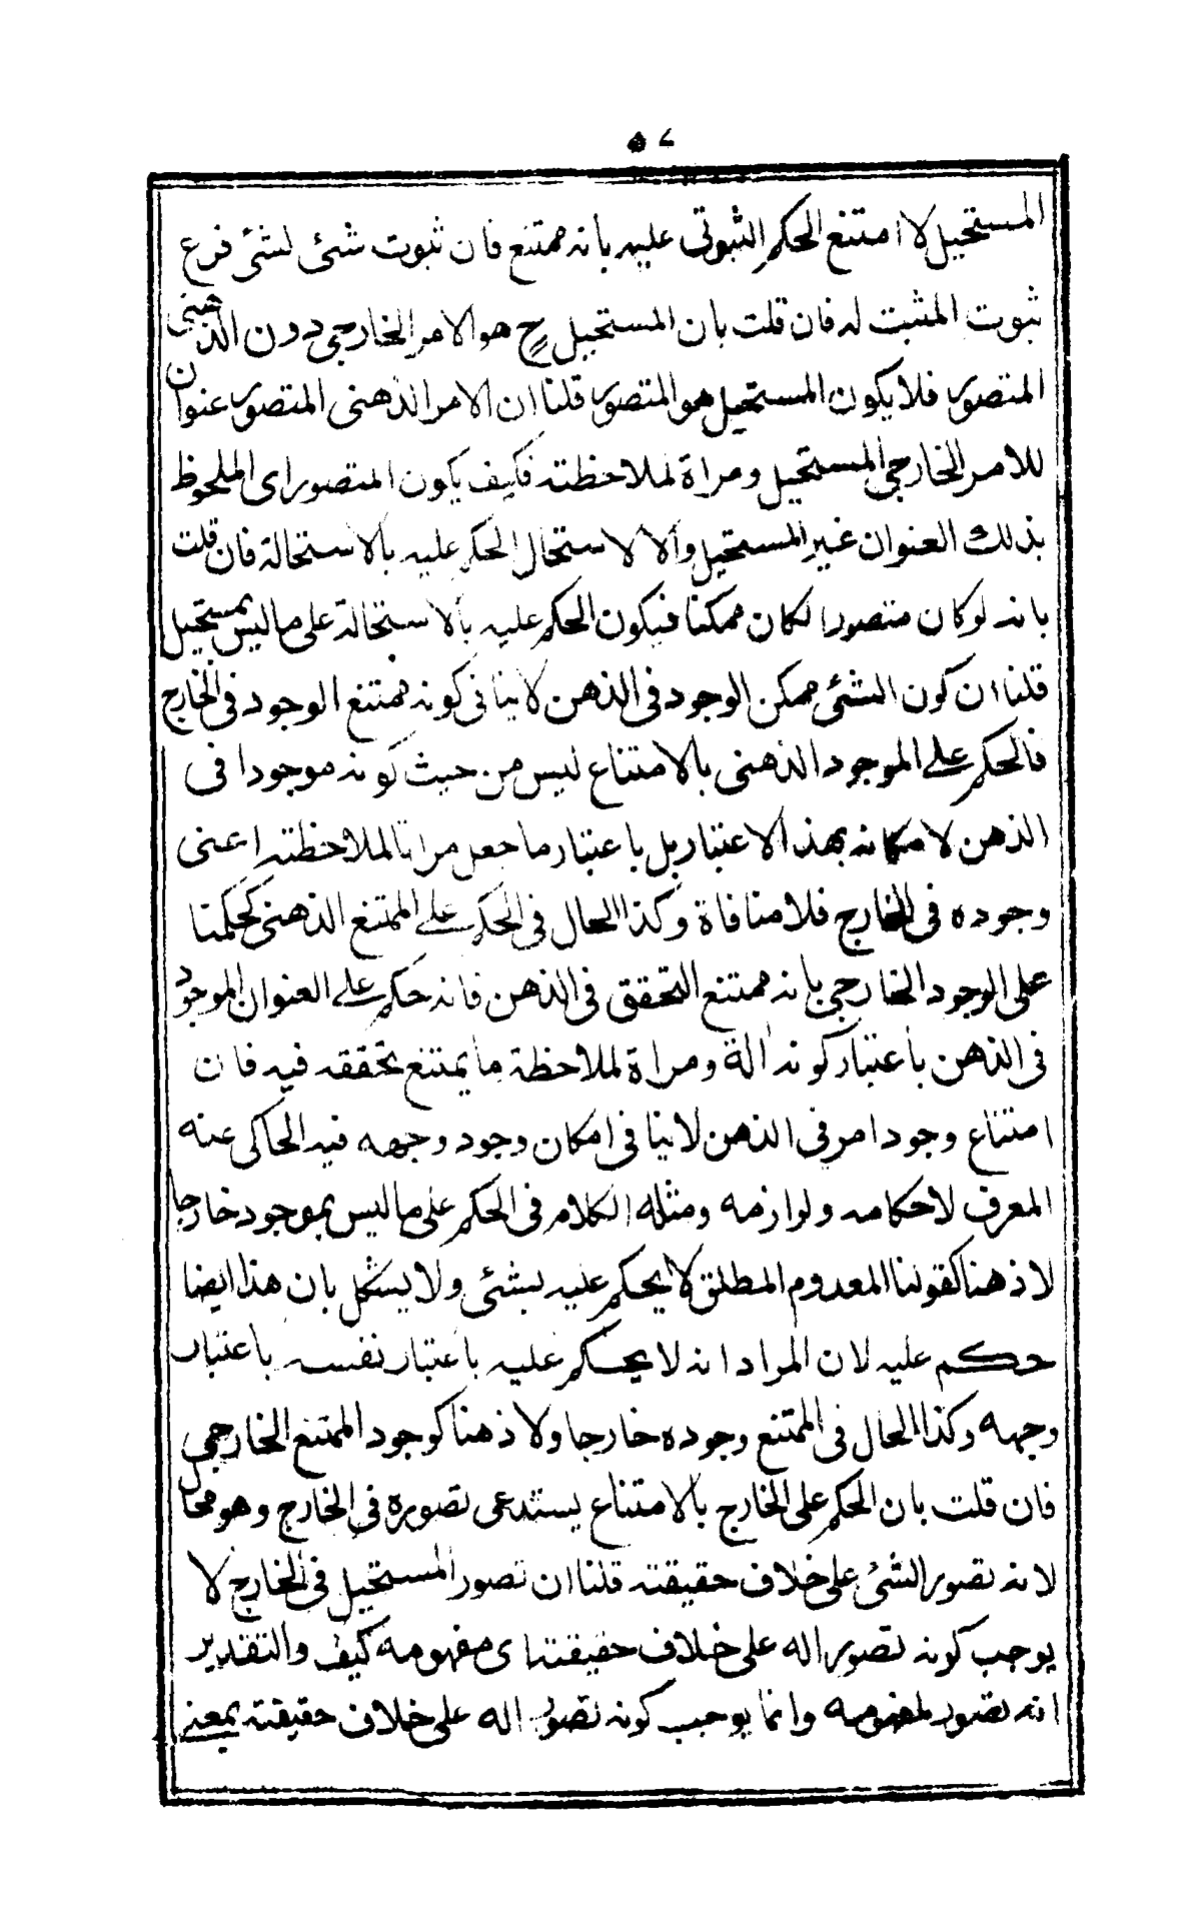 المستحيل لا امتنع الحكم الثبوتى عليه بانه ممتنع فان ثبوت شئ لشئ فرع
ثبوت المثبت له فان قلت بان المستحيل ح هو الامر الخارجى دون الذهنى
المتصور فلا يكون المستحيل هو المتصور قلنا ان الامر الذهنى المتصور عنوان
للامر الخارجى المستحيل ومراة لملاحظته فكيف يكون المتصور اى الملحوظ
بذلك العنوان غير المستحيل والا لاستحال الحكم عليه بالاستحالة فان قلت
بانه لو كان متصورا لكان ممكنا فيكون الحكم عليه بالاستحالة على ما ليس بمستحيل
قلنا ان كون الشئ ممكن الوجود فى الذهن لا ينافى كونه ممتنع الوجود فى الخارج
فالحكم على الموجود الذهنى بالامتناع ليس من حيث كونه موجودا فى
الذهن لامكانه بهذا الاعتبار بل باعتبار ما جعل مراتا لملاحظته اعنى
وجوده فى الخارج فلا منافاة وكذا الحال فى الحكم على الممتنع الذهنى كحكمنا
على الوجود الخارجى بانه ممتنع التحقق فى الذهن فانه حكم على العنوان الموجود
فى الذهن باعتبار كونه الة ومراة لملاحظة ما يمتنع تحققه فيه فان
امتناع وجود امر فى الذهن لا ينافى امكان وجود وجهه فيه الحاكى عنه
المعرف لاحكامه ولوازمه ومثله الكلام فى الحكم على ما ليس بموجود خارجا
لا ذهنا كقولنا المعدوم المطلق لا يحكم عليه بشئ ولا يشكل بان هذا ايضا
حكم عليه لان المراد انه لا يحكم عليه باعتبار نفسه باعتبار
وجهه وكذا الحال فى الممتنع وجوده خارجا ولا ذهنا كوجود الممتنع الخارجى
فان قلت بان الحكم على الخارج بالامتناع يستدعى تصوره فى الخارج وهو محال
لانه تصور الشئ على خلاف حقيقته قلنا ان تصور المستحيل فى الخارج لا
يوجب كونه تصورا له على خلاف حقيقته اى مفهومه كيف والتقدير
انه تصور لمفهومه وانما يوجب كونه تصورا له على خلاف حقيقته بمعنى